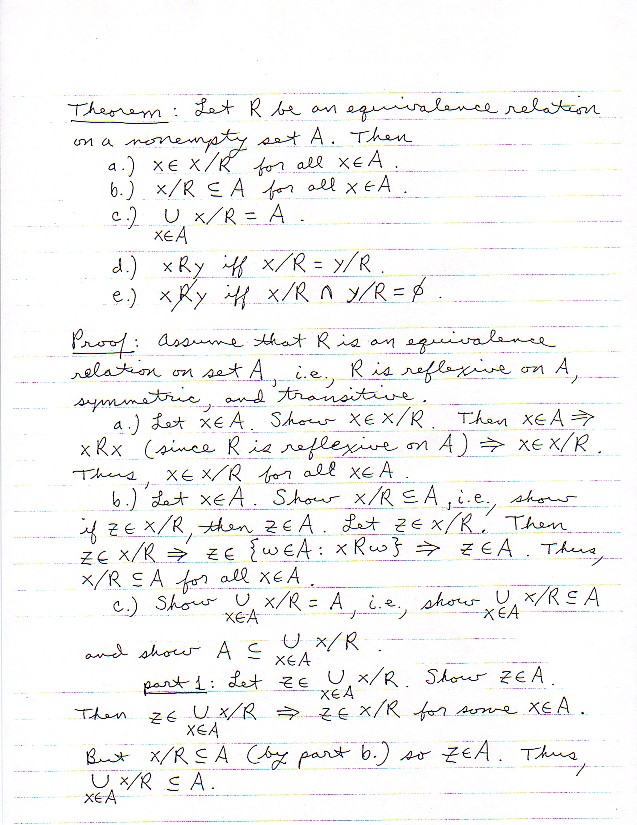 Theorem : Let R be an equivalence relation
on a nonempty set A. Then
a.) x∈ x/R for all x∈A .
b.) x/R ⊆ A for all x∈A .
c.) ∪ x/R = A .
x∈A
d.) xRy iff x/R = y/R .
e.) xR̸y iff x/R ∩ y/R = ∅ .
Proof : Assume that R is an equivalence
relation on set A, i.e., R is reflexive on A,
symmetric, and transitive .
a.) Let x∈A. Show x∈x/R. Then x∈A ⇒
xRx (since R is reflexive on A) ⇒ x∈x/R .
Thus, x∈x/R for all x∈A .
b.) Let x∈A. Show x/R ⊆ A, i.e., show
if z∈x/R, then z∈A. Let z∈x/R. Then
z∈x/R ⇒ z∈ {w∈A: xRw} ⇒ z∈A . Thus,
x/R ⊆ A for all x∈A .
c.) Show ∪ x/R = A, i.e., show ∪ x/R ⊆ A
x∈A x∈A
and show A ⊆ ∪ x/R .
x∈A
part 1: Let z∈ ∪ x/R. Show z∈A.
x∈A
Then z∈ ∪ x/R ⇒ z∈x/R for some x∈A .
x∈A
But x/R ⊆ A (by part b.) so z∈A . Thus,
∪ x/R ⊆ A.
x∈A